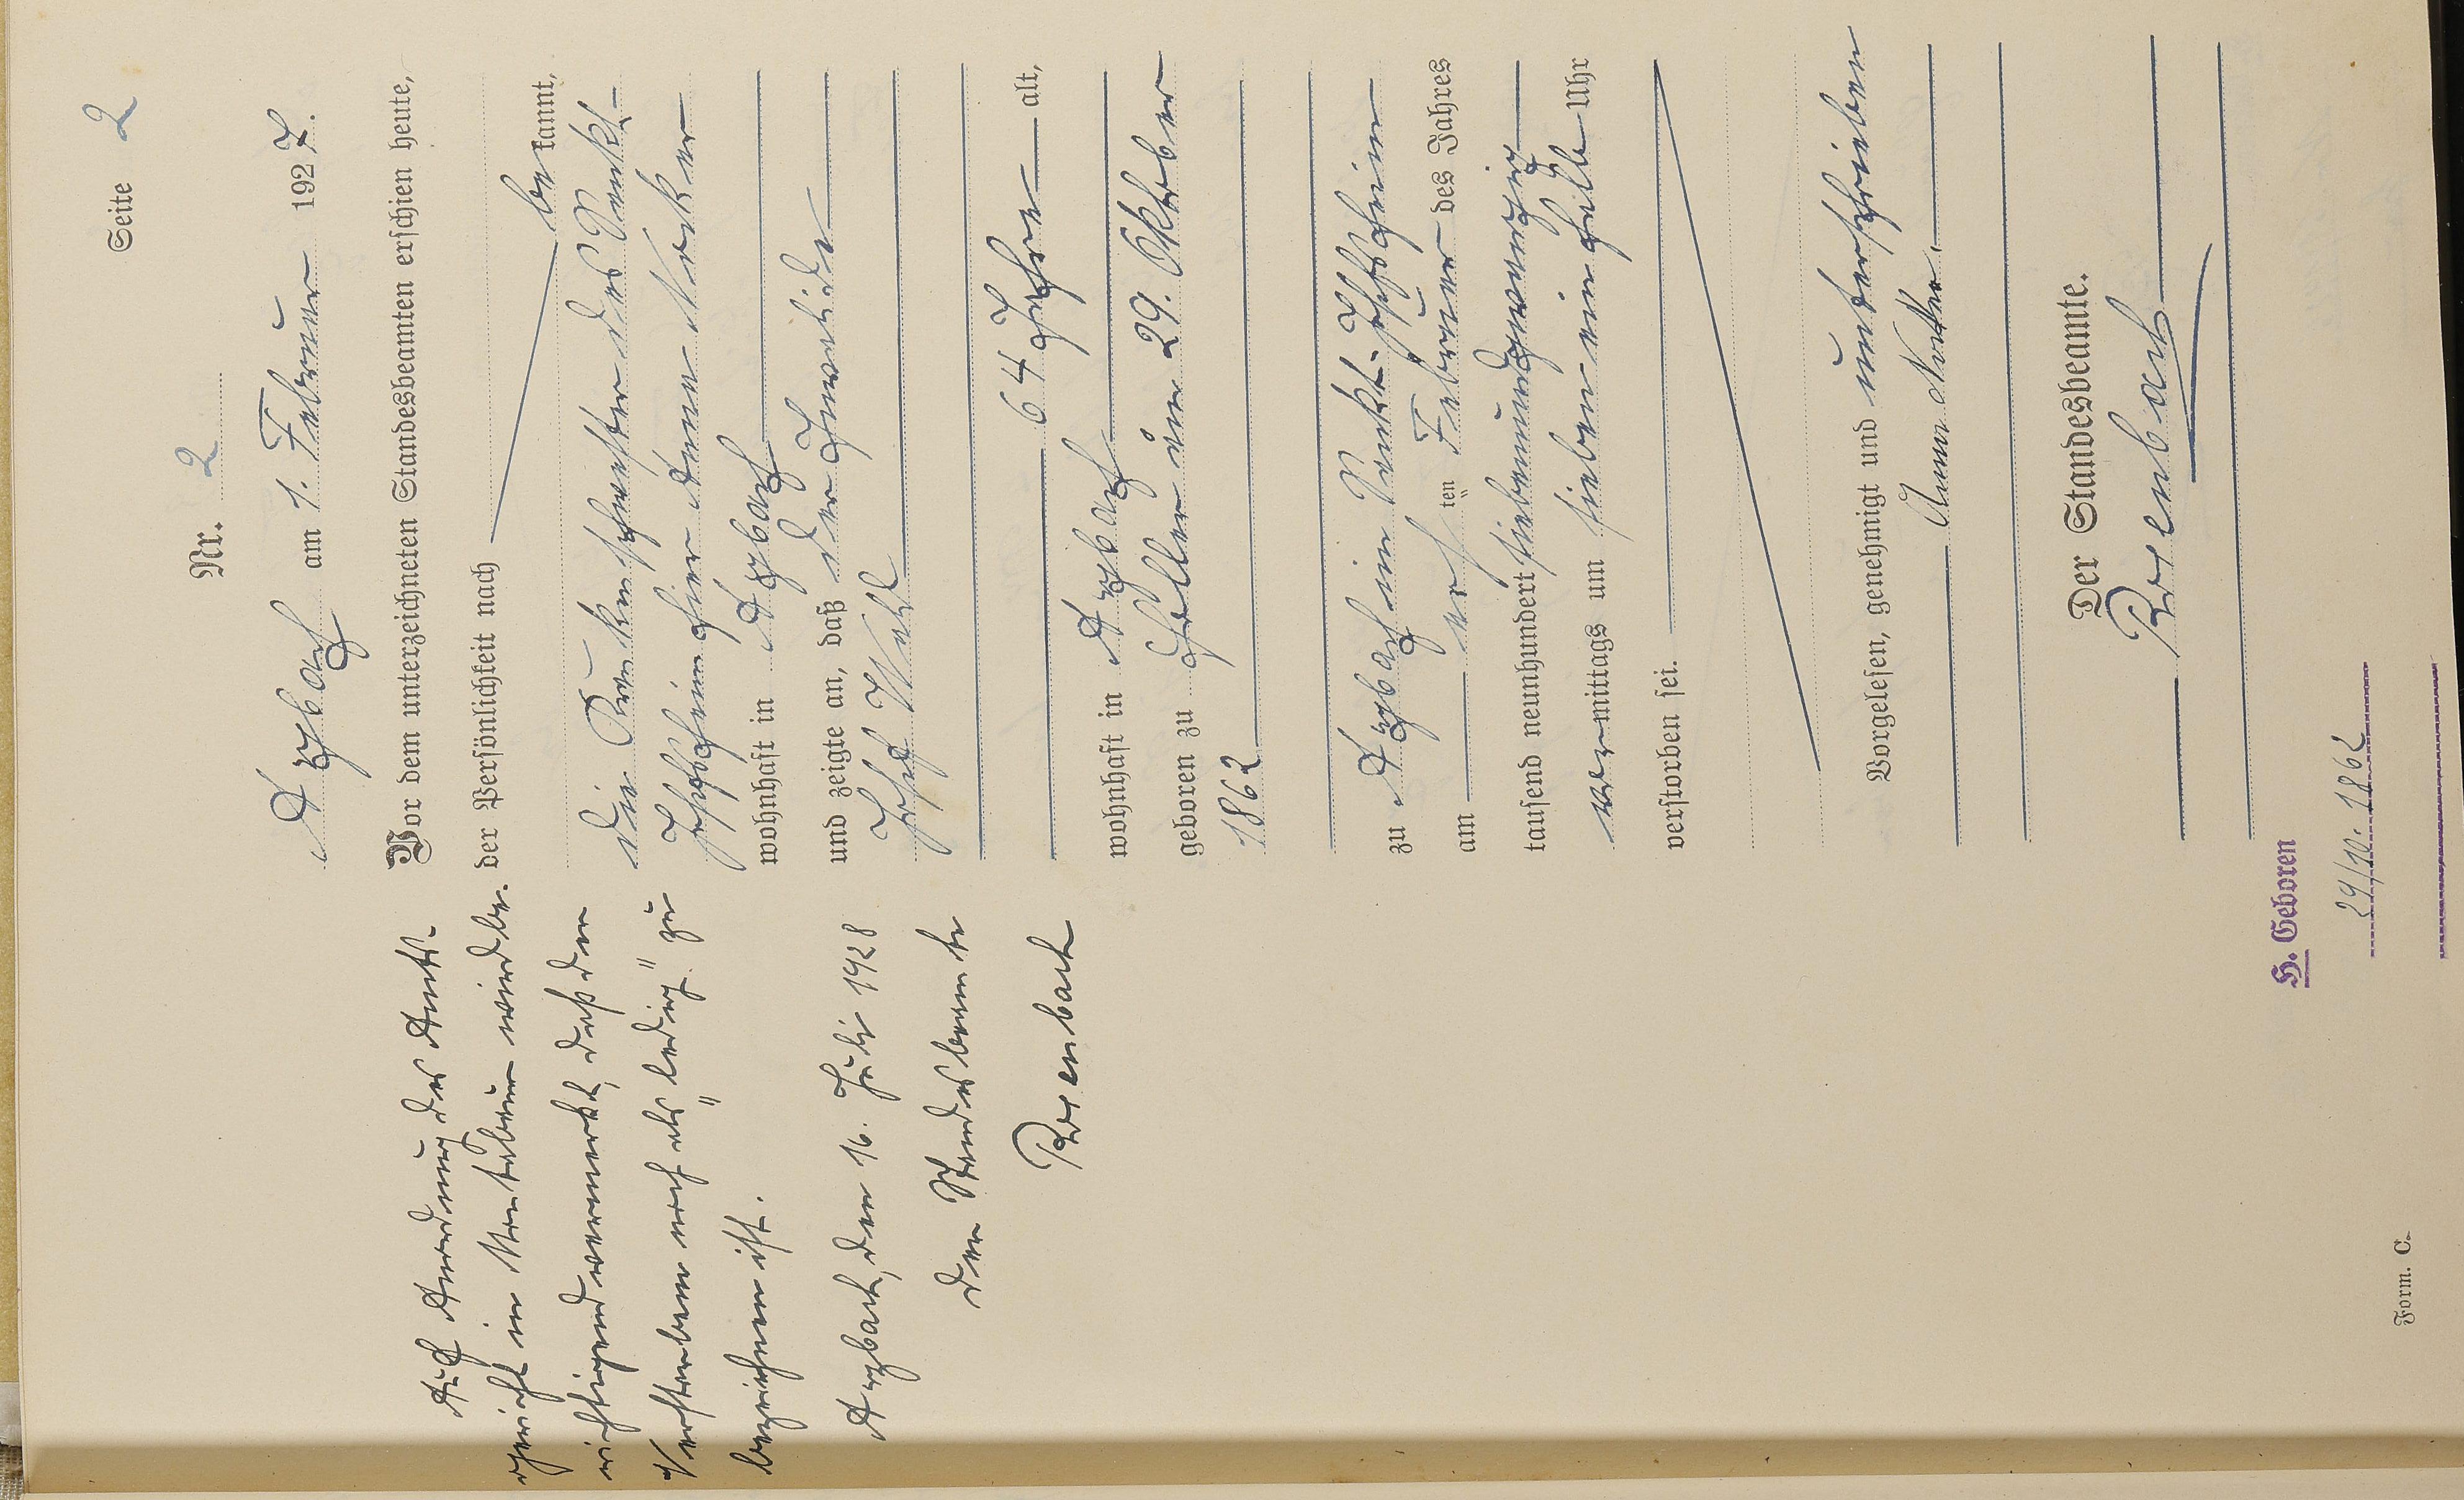 Seite 2
Nr. 2
Arzbach am 1. Februar 1927.
Vor dem unterzeichneten Standesbeamten erschien heute,
der Persönlichkeit nach
be kannt,
die Krankenschwester des Sankt-
Josefsheim hier Anna
wohnhaft in Arzbach
und zeigte an, daß der Invalide
Josef
64 Jahre alt,
wohnhaft in Arzbach
geboren zu im 29. Oktober
1862
zu Arzbach im Sankt-Josefsheim
am ten Februar des Jahres
tausend neunhundert siebenundzwanzig
vormittags um sieben einhalb Uhr
verstorben sei.
Vorgelesen, genehmigt und unterschrieben
Anna
Der Standesbeamte.
Rosenbach
Auf Anordnung des Amts-
gericht in Montabaur wird be-
richtigend vermerkt, daß der
Verstorbene noch als "ledig" zu
bezeichnen ist.
Arzbach, den 16. Juli 1928
Der Standesbeamte
Rosenbach
H. Geboren
29/10. 1862
Form. C.